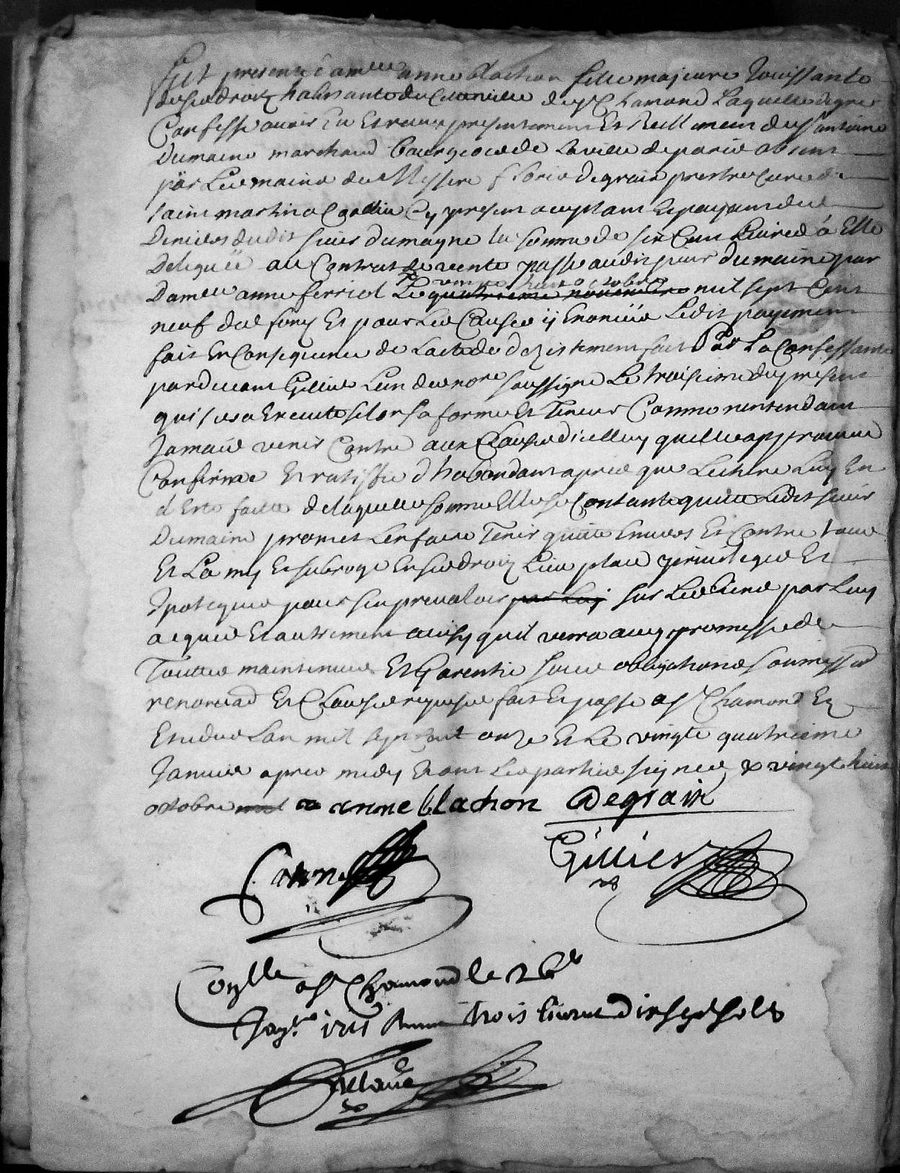 fut presente dam.lle anne blachon fille majeure Jouissante
de ses droits habitante de cette ville de St Chamond Laquelle de gré
Confesse avoir Eu Et receu presentement Et reellement de Sr antoine
Dumaine marchand bourgeois de La ville de paris absent
par Les mains de Messire floris degrais prestre Curé de
saint martin a Coallieu Cy present aceptant Et payant des
deniers dudit sieur dumayne La somme de six Cent Livres a Elle
Deleguée au Contrat de vente passé audit sieur dumaine par
Dam.lle anne ferriol Le quatrieme novembre vingt huit octobre mil sept Cent
neuf du fonds Et pour Les Causes y Enoncées Ledit payement
fait En Consequence de Lacte de dezistement fait Par La Confessante
pardevant Gillier Lun des no.res soussigné Le troisieme du present
qui sera Executé selon sa forme Et Teneur Comme nentendant
Jamais venir Contre aux Clauses dicelluy quelle approuve
Confirme Et ratiffie dhabondant apres que Lecture Luy En
a Esté faitte de laquelle somme Elle se Contante quitte Ledit sieur
Dumaine promet Len faire Tenir quitte Envers Et Contre tous
Et La mis Et subrogé En ses droits Lieu place privileges Et
Ipoteques pour sen prevaloir par Luy sur Les biens par Luy
acquis Et autrement ainsy quil verra avec promesse de
Toutte maintenue Et Garentie sous obligations soumissions
renonciations Et Clauses requises fait Et passé a St Chamond Ez
Etudes Lan mil sept cent onze Et Le vingt quatrieme
Janvier apres midy Et ont Les parties signé x vingt huit
octobre anne blachon Degrain
Gillier
Con.lle a St Chamond le 26e
Janv.r 1711 Receu trois livres dix sept sols